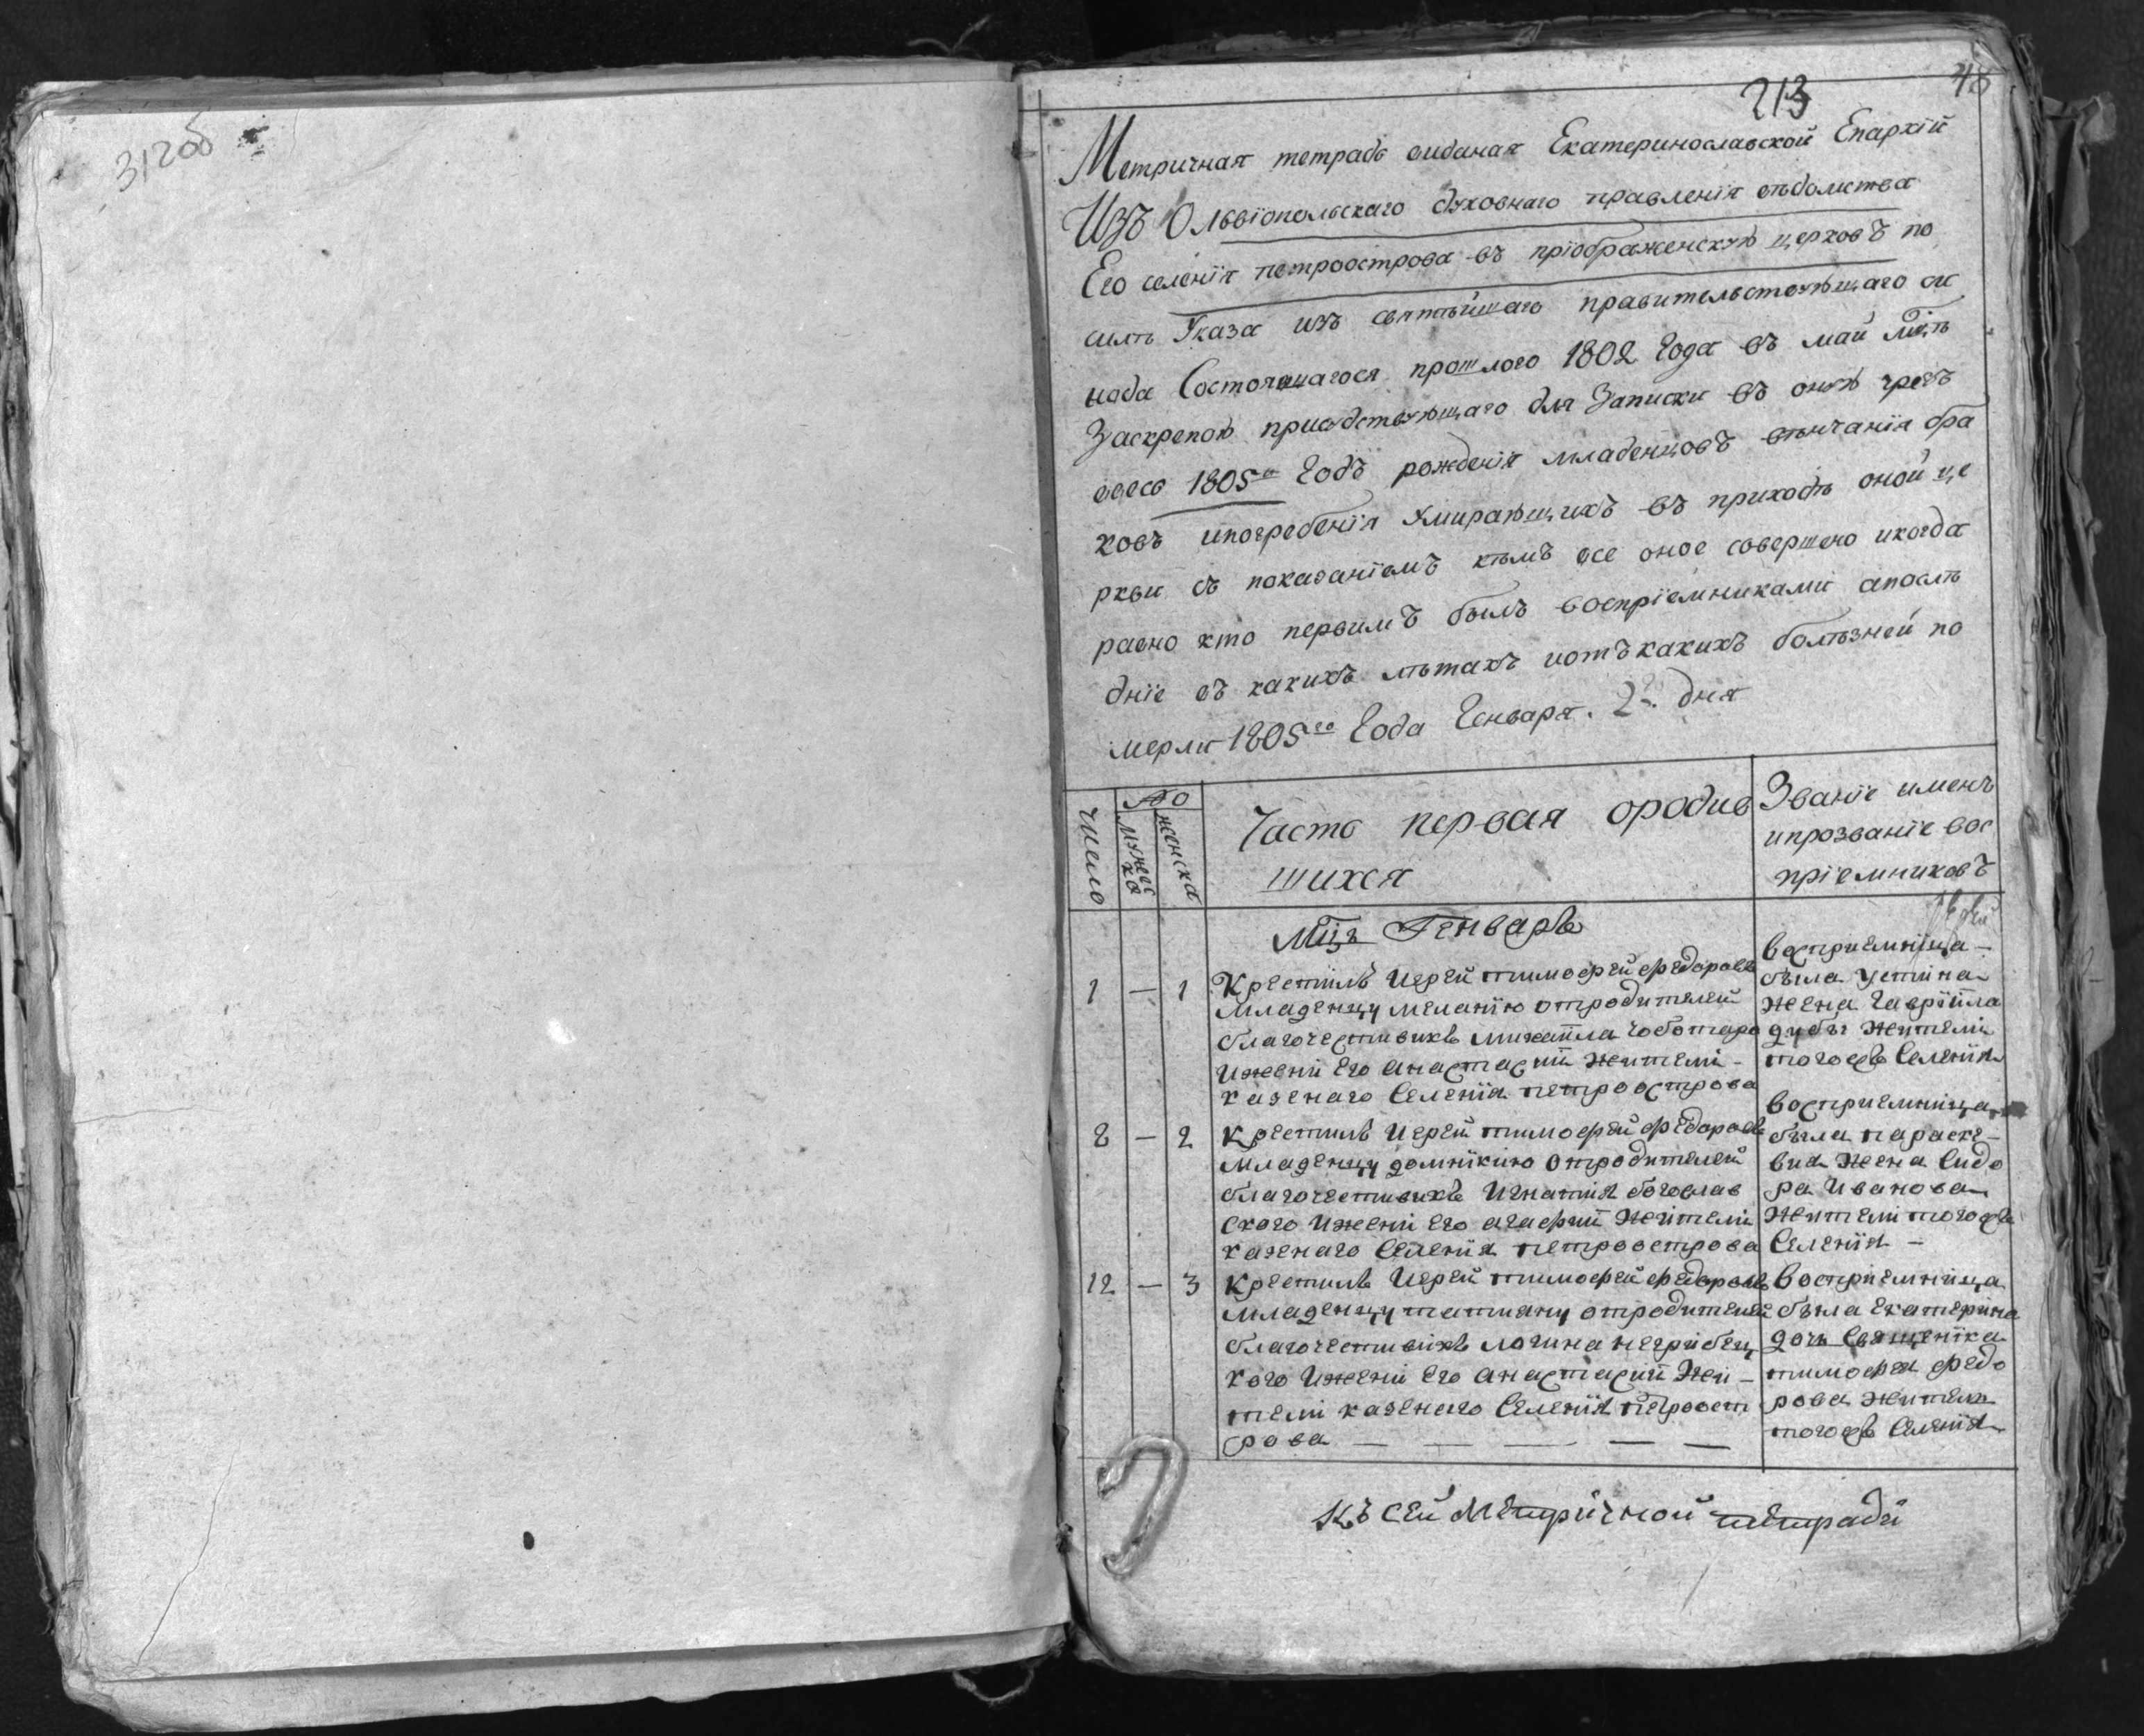 312об
213
48
Метричная тетрадь виданая Екатеринославской Епархіи
Изъ Ольвіопольскаго духовнаго правленія вѣдомства
Его селенія петроострова въ пріображенскую церковъ по
силѣ Указа изъ святѣйшаго правительствующаго си
нода Состоявшагося прошлого 1802 Года въ маи мцѣ
Заскрепою присудствующаго для Записки въ оную чрезъ
весь 1805й Годъ рожденія младенцовъ вѣнчанія бра
ковъ ипогребенія Умирающихъ въ приходѣ оной це
ркви съ показаніемъ кѣмъ все оное совершено икогда
равно кто первимъ былъ воспріемниками апослѣ
дніе въ какихъ лѣтахъ иотъкакихъ болѣзней по
мерли 1805го Года Генваря 2го дня
Число
мужес
ка
женска
Часть первая ородив
шихся
Званіе именъ
ипрозваніе вос
пріемниковъ
Мцъ Генварь
1 — 1
Крестилъ Иерей тимофей федоровъ
младенцу меланїю отродителей
благочестивихъ михаїла чоботаря
ижени Его анастасиї жители
казенаго Селенїя петроострова
восприемнїца
была Устина
жена гавриїла
дуби жители
тогожъ Селенїя
2 — 2
Крестилъ Иерей тимофей федоровъ
младенцу домнїкию отродителей
благочестивихъ Игнатия богослав
ского Ижени Его агафиї жители
казенаго Селенїя петроострова
восприемнїца
была параске
вия жена Сидо
ра Иванова
жители тогожъ
Селенїя
12 — 3
Крестилъ Иерей тимофей федоровъ
младенцу татиану отродителей
благочестивихъ логина негрибец
кого Ижени Его анастасиї жи
тели казенаго Селенїя петроост
рова
восприемнїца
была екатерина
дочь Священїка
тимофея федо
рова жители
тогожъ Селенїя
Къ сей метричной тетради